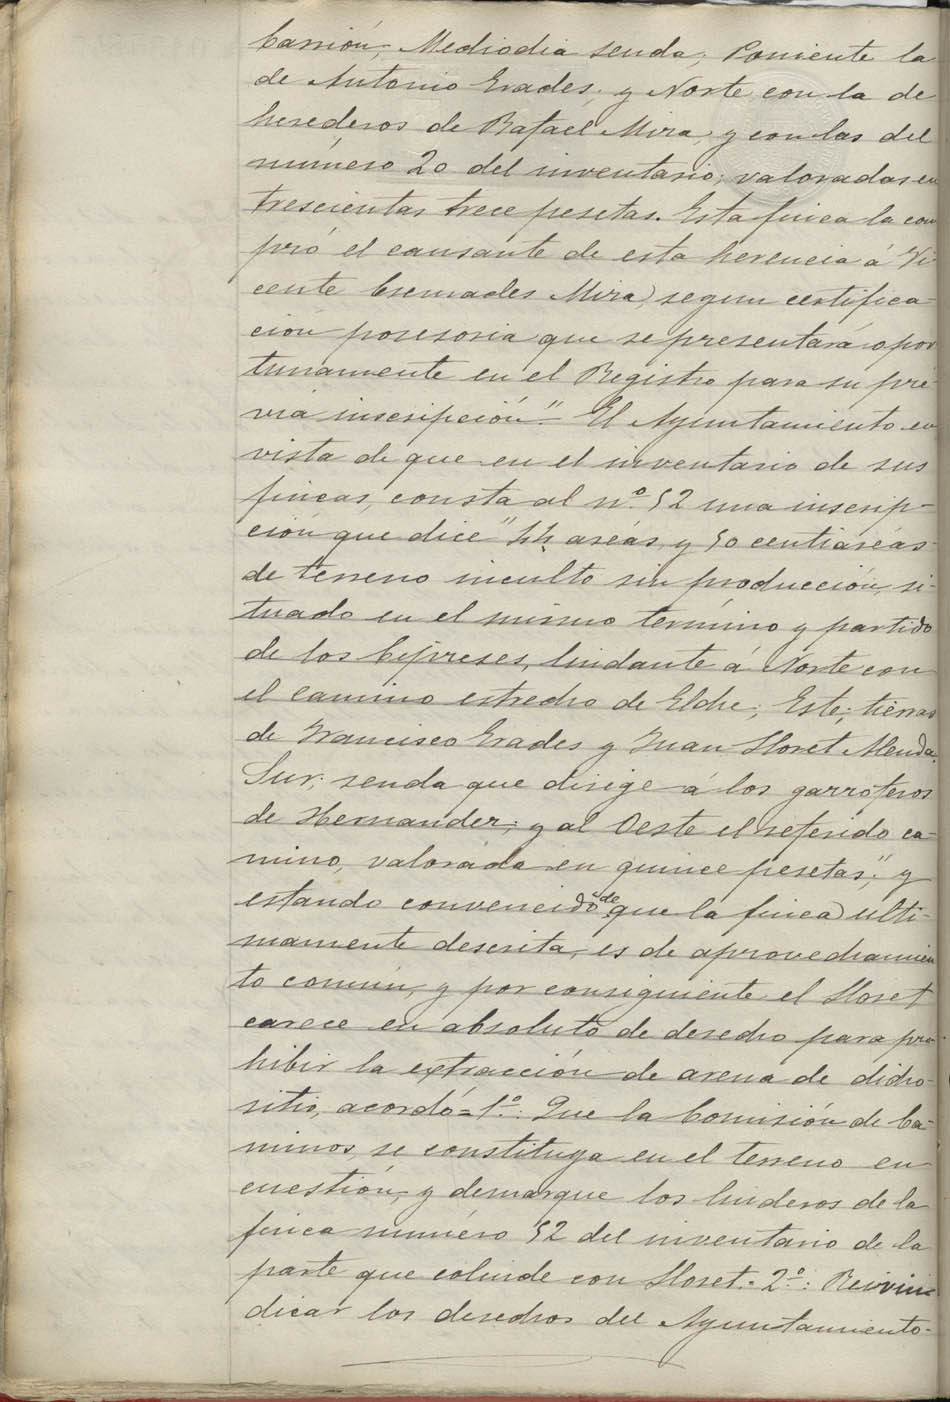 Carrión; Mediodia senda; Poniente la
de Antonio Erades; y Norte con la de
herederos de Rafael Mira, y con las del
número 20 del inventario; valoradas en
trescientas trece pesetas. Esta finca la com
pró el causante de esta herencia á Vi-
cente Cremades Mira, segun certifica-
ción posesoria que se presentará opor
tunamente en el Registro para su pré
via inscripción." El Ayuntamiento en
vista de que en el inventario de sus
fincas, consta al nº. 52 una inscrip-
ción que dice "44 areas, y 50 centiareas
de terreno inculto sin producción, si-
tuado en el mismo término y partido
de los Cipreses, lindante á Norte con
el camino estrecho de Elche; Este; tierras
de Francisco Erades y Juan Lloret Alenda.
Sur; senda que dirige á los garroferos
de Hernander; y al Oeste el referido ca-
mino, valorada en quince pesetas;" y
estando convencido de que la finca ulti-
mamente descrita, es de aprovechamien
to común, y por consiguiente el Lloret
carece en absoluto de derecho para pro
hibir la extracción de arena de dicho
sitio, acordó=1º.: Que la Comisión de Ca-
minos, se constituya en el terreno en
cuestión, y demarque los linderos de la
finca número 52 del inventario de la
parte que colinde con Lloret. 2º.: Reivin
dicar los derechos del Ayuntamiento-